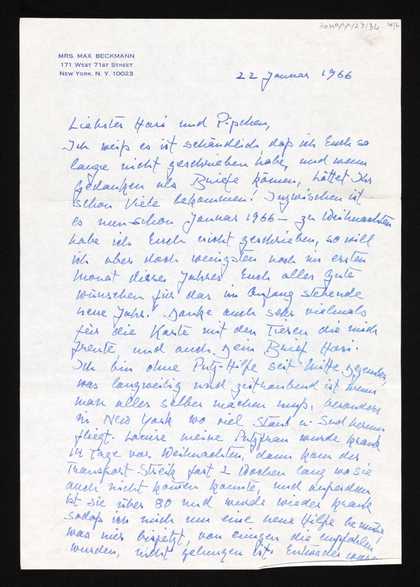 MRS. MAX BECKMANN
171 WEST 71ST STREET
NEW YORK, N. Y. 10023
22 Januar 1966
Liebster Hasi und Pipchen,
Ich weiß es ist schändlich, daß ich Euch so
lange nicht geschrieben habe, und wenn
Gedanken als Briefe kämen, hättet Ihr
schon viele bekommen. Inzwischen ist
es nun schon Januar 1966 – zu Weihnachten
habe ich Euch nicht geschrieben, so will
ich aber doch wenigsten noch im ersten
Monat dieses Jahres Euch alles Gute
wünschen für das im Anfang stehende
neue Jahr. Danke auch sehr vielmals
für die Karte mit den Tieren die mich
freute und auch Dein Brief Hasi.
Ich bin ohne Putz-Hilfe seit Mitte Dezember
was langweilig und zeitraubend ist wenn
man alles selber machen muß, besonders
in New York wo viel Staub u. herum
fliegt. meine Putzfrau wurde krank
14 Tage vor Weihnachten, dann kam der
Transport Streik fast 2 Wochen lang wo sie
auch nicht kommen konnte, und außerdem
ist sie über 80 und wurde wieder krank
sodaß ich mich um eine neue Hilfe
was mir bisjetzt, von einigen die empfohlen
wurden, nicht gelungen ist. Entweder